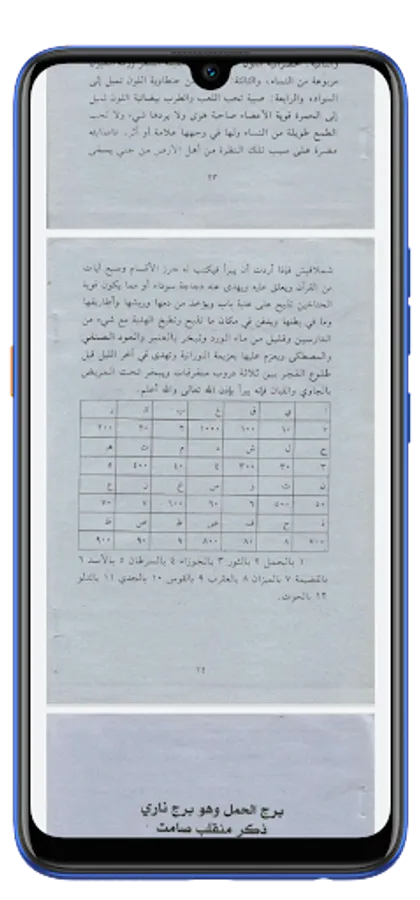 مربوعة من النساء، والثالثة: من حنطاوية اللون تميل إلى
السواد، والرابعة: صبية تحب اللعب والطرب بيضانية اللون تميل
إلى الحمرة قوية الأعضاء صاحبة هوى ولا يردها شيء ولا تحب
الطمع طويلة من النساء ولها في وجهها علامة أو أثر،
مضرة على سبب تلك النظرة من أهل الأرض من جني يسمى
٢٣
شملاقيش فإذا أردت أن يبرأ فيكتب له حرز الأقسام وسبع آيات
من القرآن ويعلق عليه ويهدى عنه دجاجة سوداء أو مما يكون قوية
الجناحين تذبح على عتبة بابه ويؤخذ من دمها وريشها وأطاريفها
وما في بطنها ويدفن في مكان ما تذبح وتطبخ الهدية مع شيء من
الدارسين وقليل من ماء الورد وتبخر بالعنبر والعود الصنفي
والمصطكى ويعزم عليها بعزيمة النورانية وتهدى في آخر الليل قبل
طلوع الفجر بين ثلاثة دروب متفرقات ويبخر تحت المريض
بالجاوي واللبان فإنه يبرأ بإذن الله تعالى والله أعلم.
ا ي ق غ ب ك ر
١٠ ١٠٠ ١٠٠٠ ٢ ٢٠ ٢٠٠
ج ل ش د م ت هـ
٣ ٣٠ ٣٠٠ ٤ ٤٠ ٤٠٠ ٥
ن ث و س خ ز ع
٥٠ ٥٠٠ ٦ ٦٠ ٦٠٠ ٧ ٧٠
ذ ح ف ض ط ص ظ
٧٠٠ ٨ ٨٠ ٨٠٠ ٩ ٩٠ ٩٠٠
١ بالحمل ٢ بالثور ٣ بالجوزاء ٤ بالسرطان ٥ بالأسد ٦
٧ بالميزان ٨ بالعقرب ٩ بالقوس ١٠ بالجدي ١١ بالدلو
١٢ بالحوت.
٢٤
برج الحمل وهو برج ناري
ذكر منقلب صامت